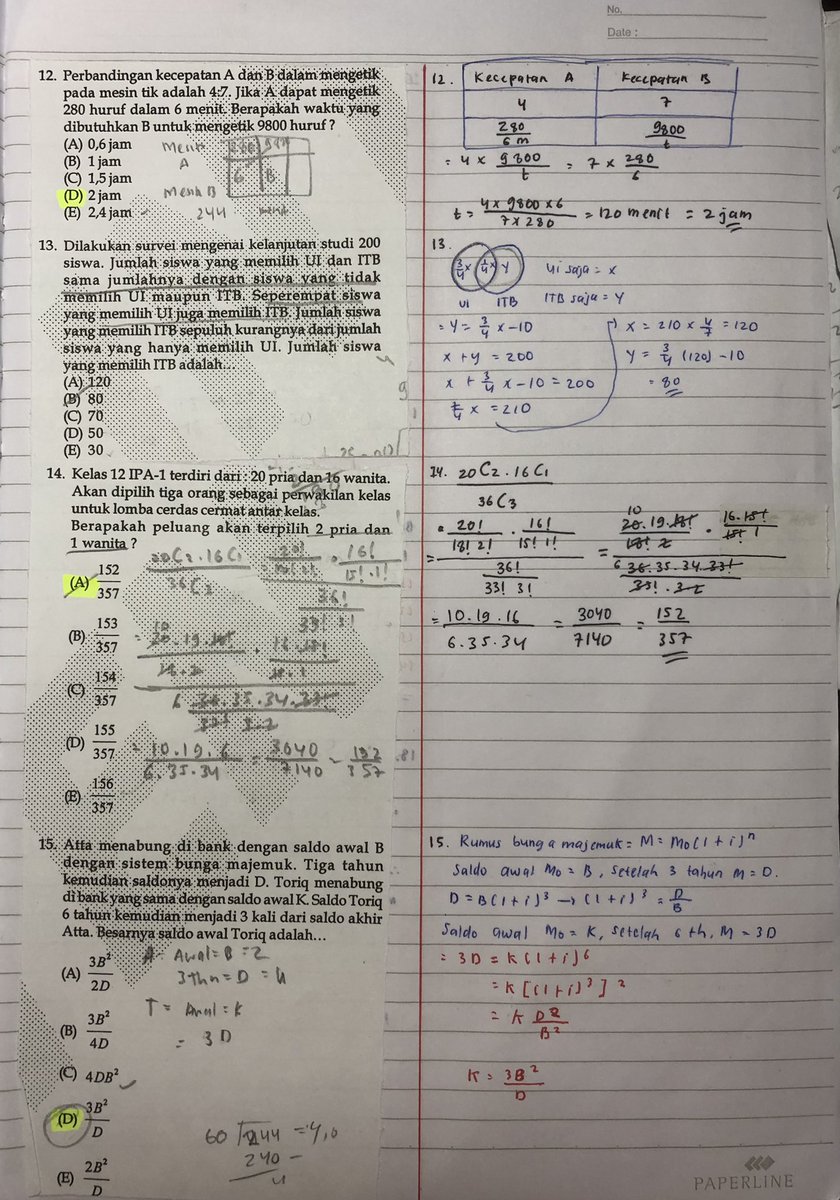 No.
Date :
12. Perbandingan kecepatan A dan B dalam mengetik
pada mesin tik adalah 4:7. Jika A dapat mengetik
280 huruf dalam 6 menit. Berapakah waktu yang
dibutuhkan B untuk mengetik 9800 huruf ?
(A) 0,6 jam
(B) 1 jam
(C) 1,5 jam
(D) 2 jam
(E) 2,4 jam
Menit
A
280
6
B
Menit B
244
13. Dilakukan survei mengenai kelanjutan studi 200
siswa. Jumlah siswa yang memilih UI dan ITB
sama jumlahnya dengan siswa yang tidak
memilih UI maupun ITB. Seperempat siswa
yang memilih UI juga memilih ITB. Jumlah siswa
yang memilih ITB sepuluh kurangnya dari jumlah
siswa yang hanya memilih UI. Jumlah siswa
yang memilih ITB adalah...
(A) 120
(B) 80
(C) 70
(D) 50
(E) 30
14. Kelas 12 IPA-1 terdiri dari : 20 pria dan 16 wanita.
Akan dipilih tiga orang sebagai perwakilan kelas
untuk lomba cerdas cermat antar kelas.
Berapakah peluang akan terpilih 2 pria dan
1 wanita ?
(A) 152/357
(B) 153/357
(C) 154/357
(D) 155/357
(E) 156/357
20C2 . 16C1
36C3
16!
15! . 1!
36!
6 36.35.34.33!
= 10.19.6 / 6.35.34 = 3040/7140 - 152/357
15. Atta menabung di bank dengan saldo awal B
dengan sistem bunga majemuk. Tiga tahun
kemudian saldonya menjadi D. Toriq menabung
di bank yang sama dengan saldo awal K. Saldo Toriq
6 tahun kemudian menjadi 3 kali dari saldo akhir
Atta. Besarnya saldo awal Toriq adalah...
(A) 3B²/2D
(B) 3B²/4D
(C) 4DB²
(D) 3B²/D
(E) 2B²/D
A = Awal = B = 2
3 thn = D = 4
T = Awal = K
= 3D
60 √244 = 4,0
240 -
4
12. Kecepatan A Kecepatan B
4 7
280/6 m 9800/t
= 4 x 9800/t = 7 x 280/6
t = 4 x 9800 x 6 / 7 x 280 = 120 menit = 2 jam
13.
3/4 x 1/4 x Y
UI ITB
UI saja = x
ITB saja = Y
= Y = 3/4 x - 10
x + y = 200
x + 3/4 x - 10 = 200
7/4 x = 210
x = 210 x 4/7 = 120
Y = 3/4 (120) - 10
= 80
14. 20C2 . 16C1
36C3
= 20!/18! 2! . 16!/15! 1!
36!/33! 3!
= 10 20.19.18!/18! 2 . 16.15!/15! 1
6 36.35.34.33!/33! . 3.2
= 10.19.16 / 6.35.34 = 3040/7140 = 152/357
15. Rumus bunga majemuk = M = Mo (1 + i)ⁿ
Saldo awal Mo = B, setelah 3 tahun M = D.
D = B (1 + i)³ → (1 + i)³ = D/B
Saldo awal Mo = K, setelah 6 th, M = 3D
= 3D = K (1 + i)⁶
= K [(1 + i)³]²
= K D²/B²
K = 3B²/D
PAPERLINE